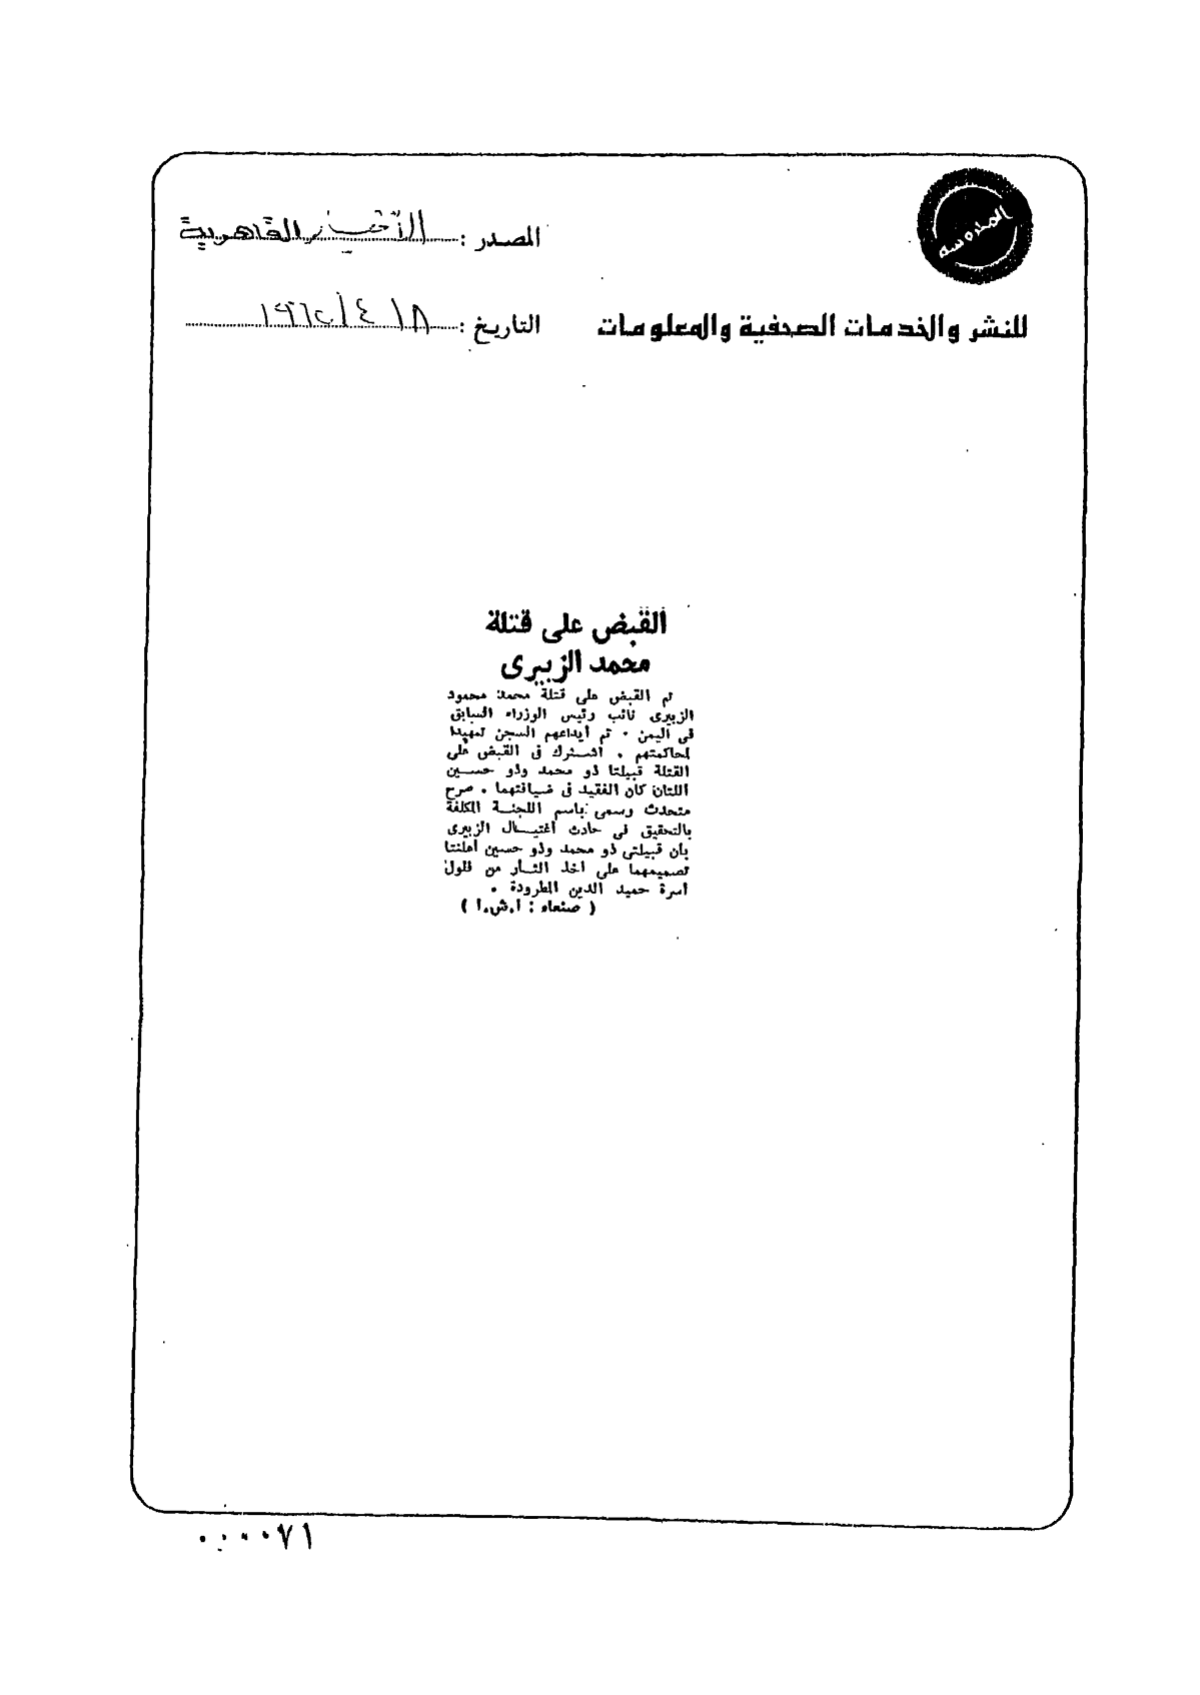 المدوسه
المصدر : الأخبار القاهرية
للنشر والخدمات الصحفية والمعلومات
التاريخ : ٨ / ٤ / ١٩٦٥
القبض على قتلة
محمد الزبيرى
تم القبض على قتلة محمد محمود
الزبيرى نائب رئيس الوزراء السابق
فى اليمن . تم أيداعهم السجن تمهيدا
لمحاكمتهم . اشترك فى القبض على
القتلة قبيلتا ذو محمد وذو حسين
اللتان كان الفقيد فى ضيافتهما . صرح
متحدث رسمى باسم اللجنة المكلفة
بالتحقيق فى حادث اغتيال الزبيرى
بأن قبيلتى ذو محمد وذو حسين أعلنتا
تصميمهما على أخذ الثأر من فلول
أسرة حميد الدين المطرودة .
( صنعاء : أ.ش.أ )
٠٠٠٠٧١